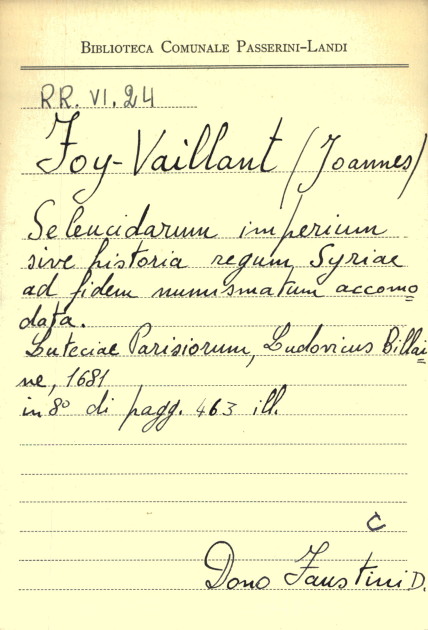 BIBLIOTECA COMUNALE PASSERINI-LANDI
RR. VI. 24
Foy-Vaillant (Joannes)
Seleucidarum imperium
sive historia regum Syriae
ad fidem numismatum accomo=
data.
Luteciae Parisiorum, Ludovicus Billai=
ne, 1681
in 8° di pagg. 463 ill.
C
Dono Faustini D.